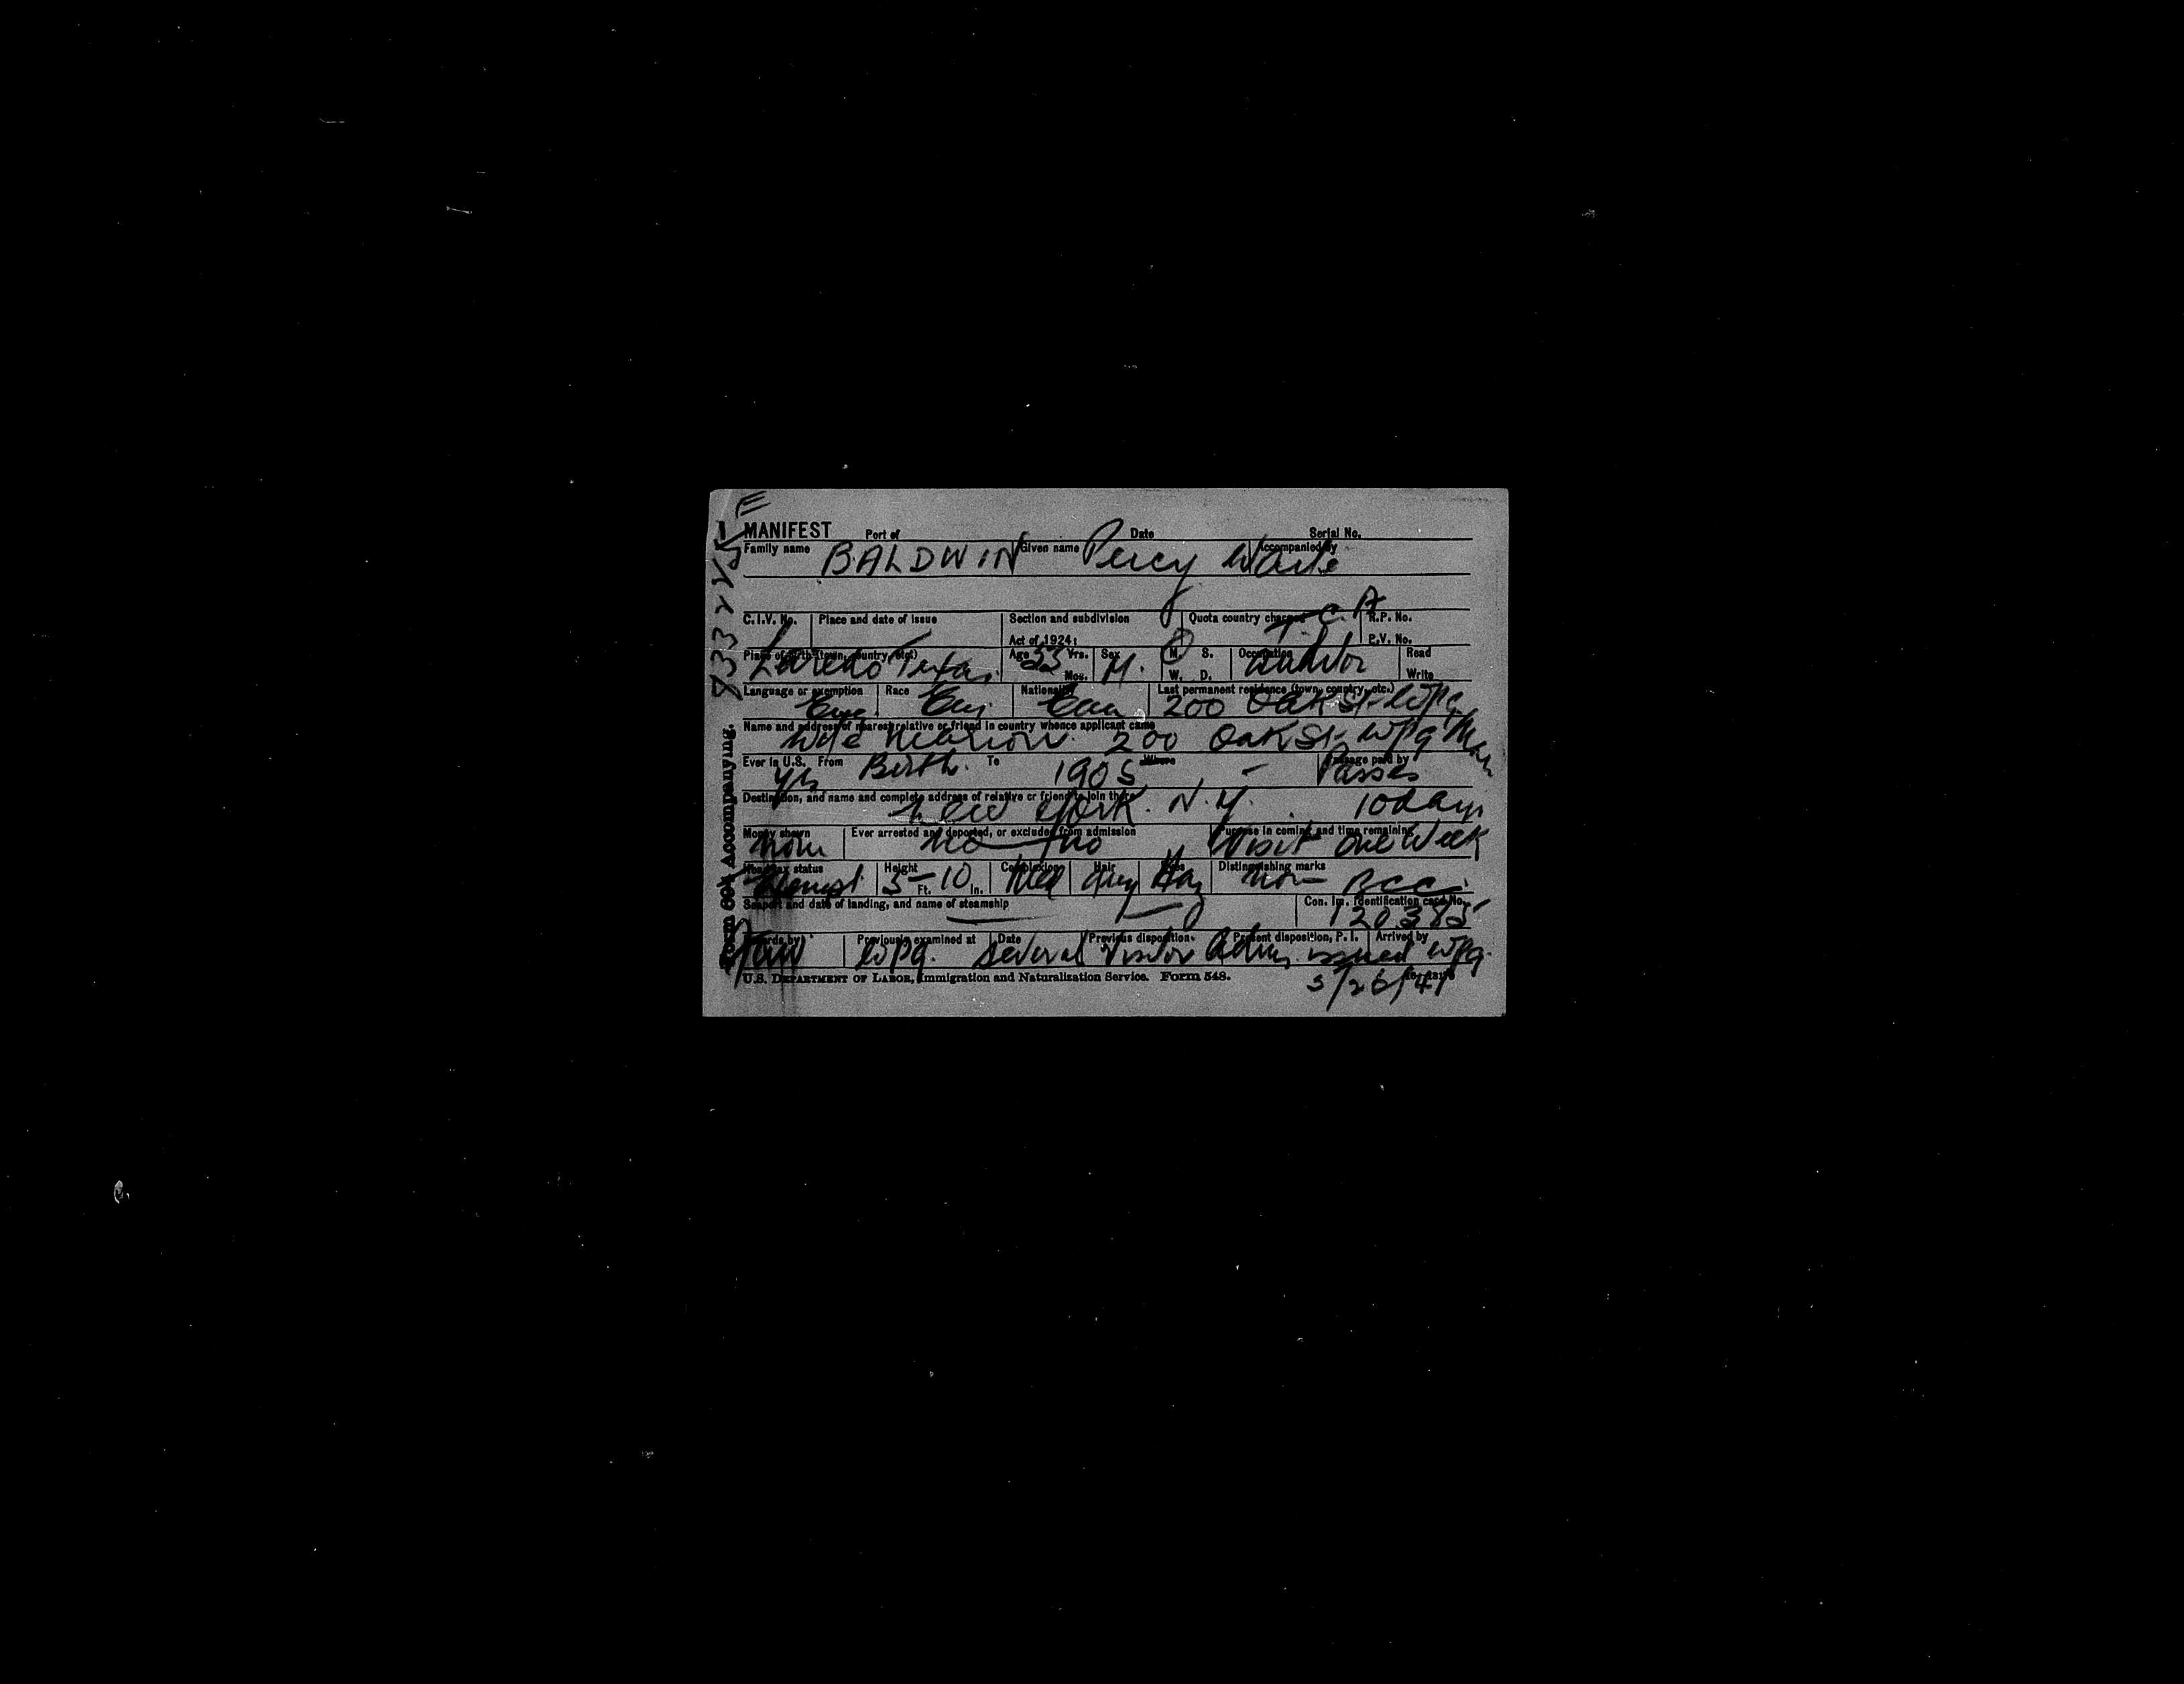 MANIFEST Port of Date Serial No.
Family name BALDWIN Given name Percy Accompanied by
C.I.V. No. Place and date of issue Section and subdivision Act of 1924: Quota country charged T.C.A. R.P. No. P.V. No.
Place of birth (town, country, etc.) Laredo Texas. Age 53 Yrs. Mos. Sex M. M. S. W. D. Occupation Auditor Read Write
Language or exemption Eng. Race Nationality Can Last permanent residence (town, country, etc.) 200 Oak St- Wpg
Name and address of nearest relative or friend in country whence applicant came wife Marion. 200 Oak St- Wpg Man
Ever in U.S. yes From Birth. To 1905 Where - Passage paid by Passes
Destination, and name and complete address of relative or friend to join there New York. N.Y. 10 days
Money shown Ever arrested and deported, or excluded from admission no - no Purpose in coming and time remaining Visit one week
Head tax status Exempt Height 5-10 Ft. In. Complexion Med Hair Grey Eyes Haz Distinguishing marks BCCC
Seaport and date of landing, and name of steamship Con. Im. Identification card No. 120385
Records by Previously examined at Wpg. Date Several Previous disposition Visitor Present disposition, P. I. Adm. issued Arrived by Wpg.
U.S. DEPARTMENT OF LABOR, Immigration and Naturalization Service. Form 548.
5/26/41
Accompanying.